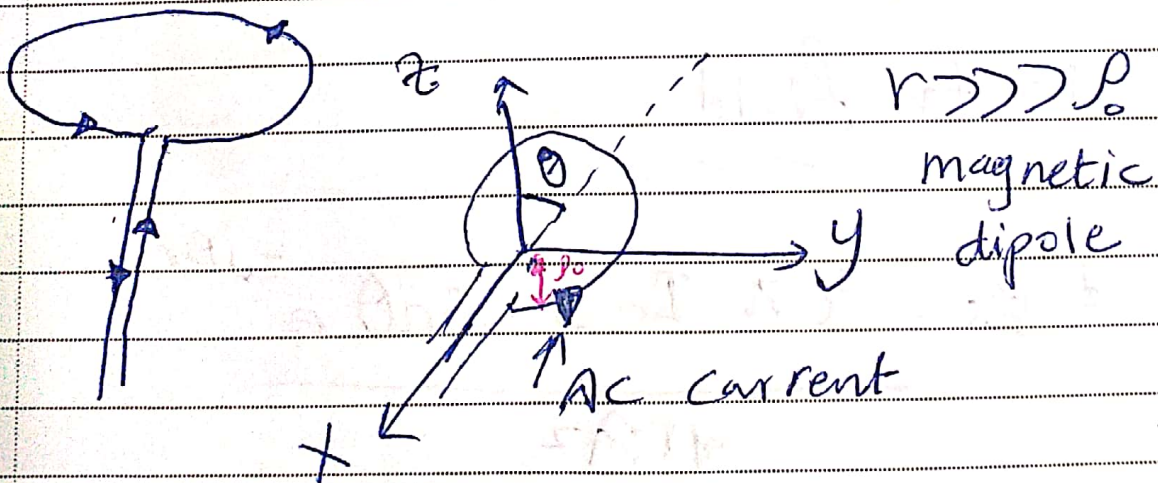 z
θ
r >>> ρ₀
magnetic
dipole
y
ρ₀
AC current
x